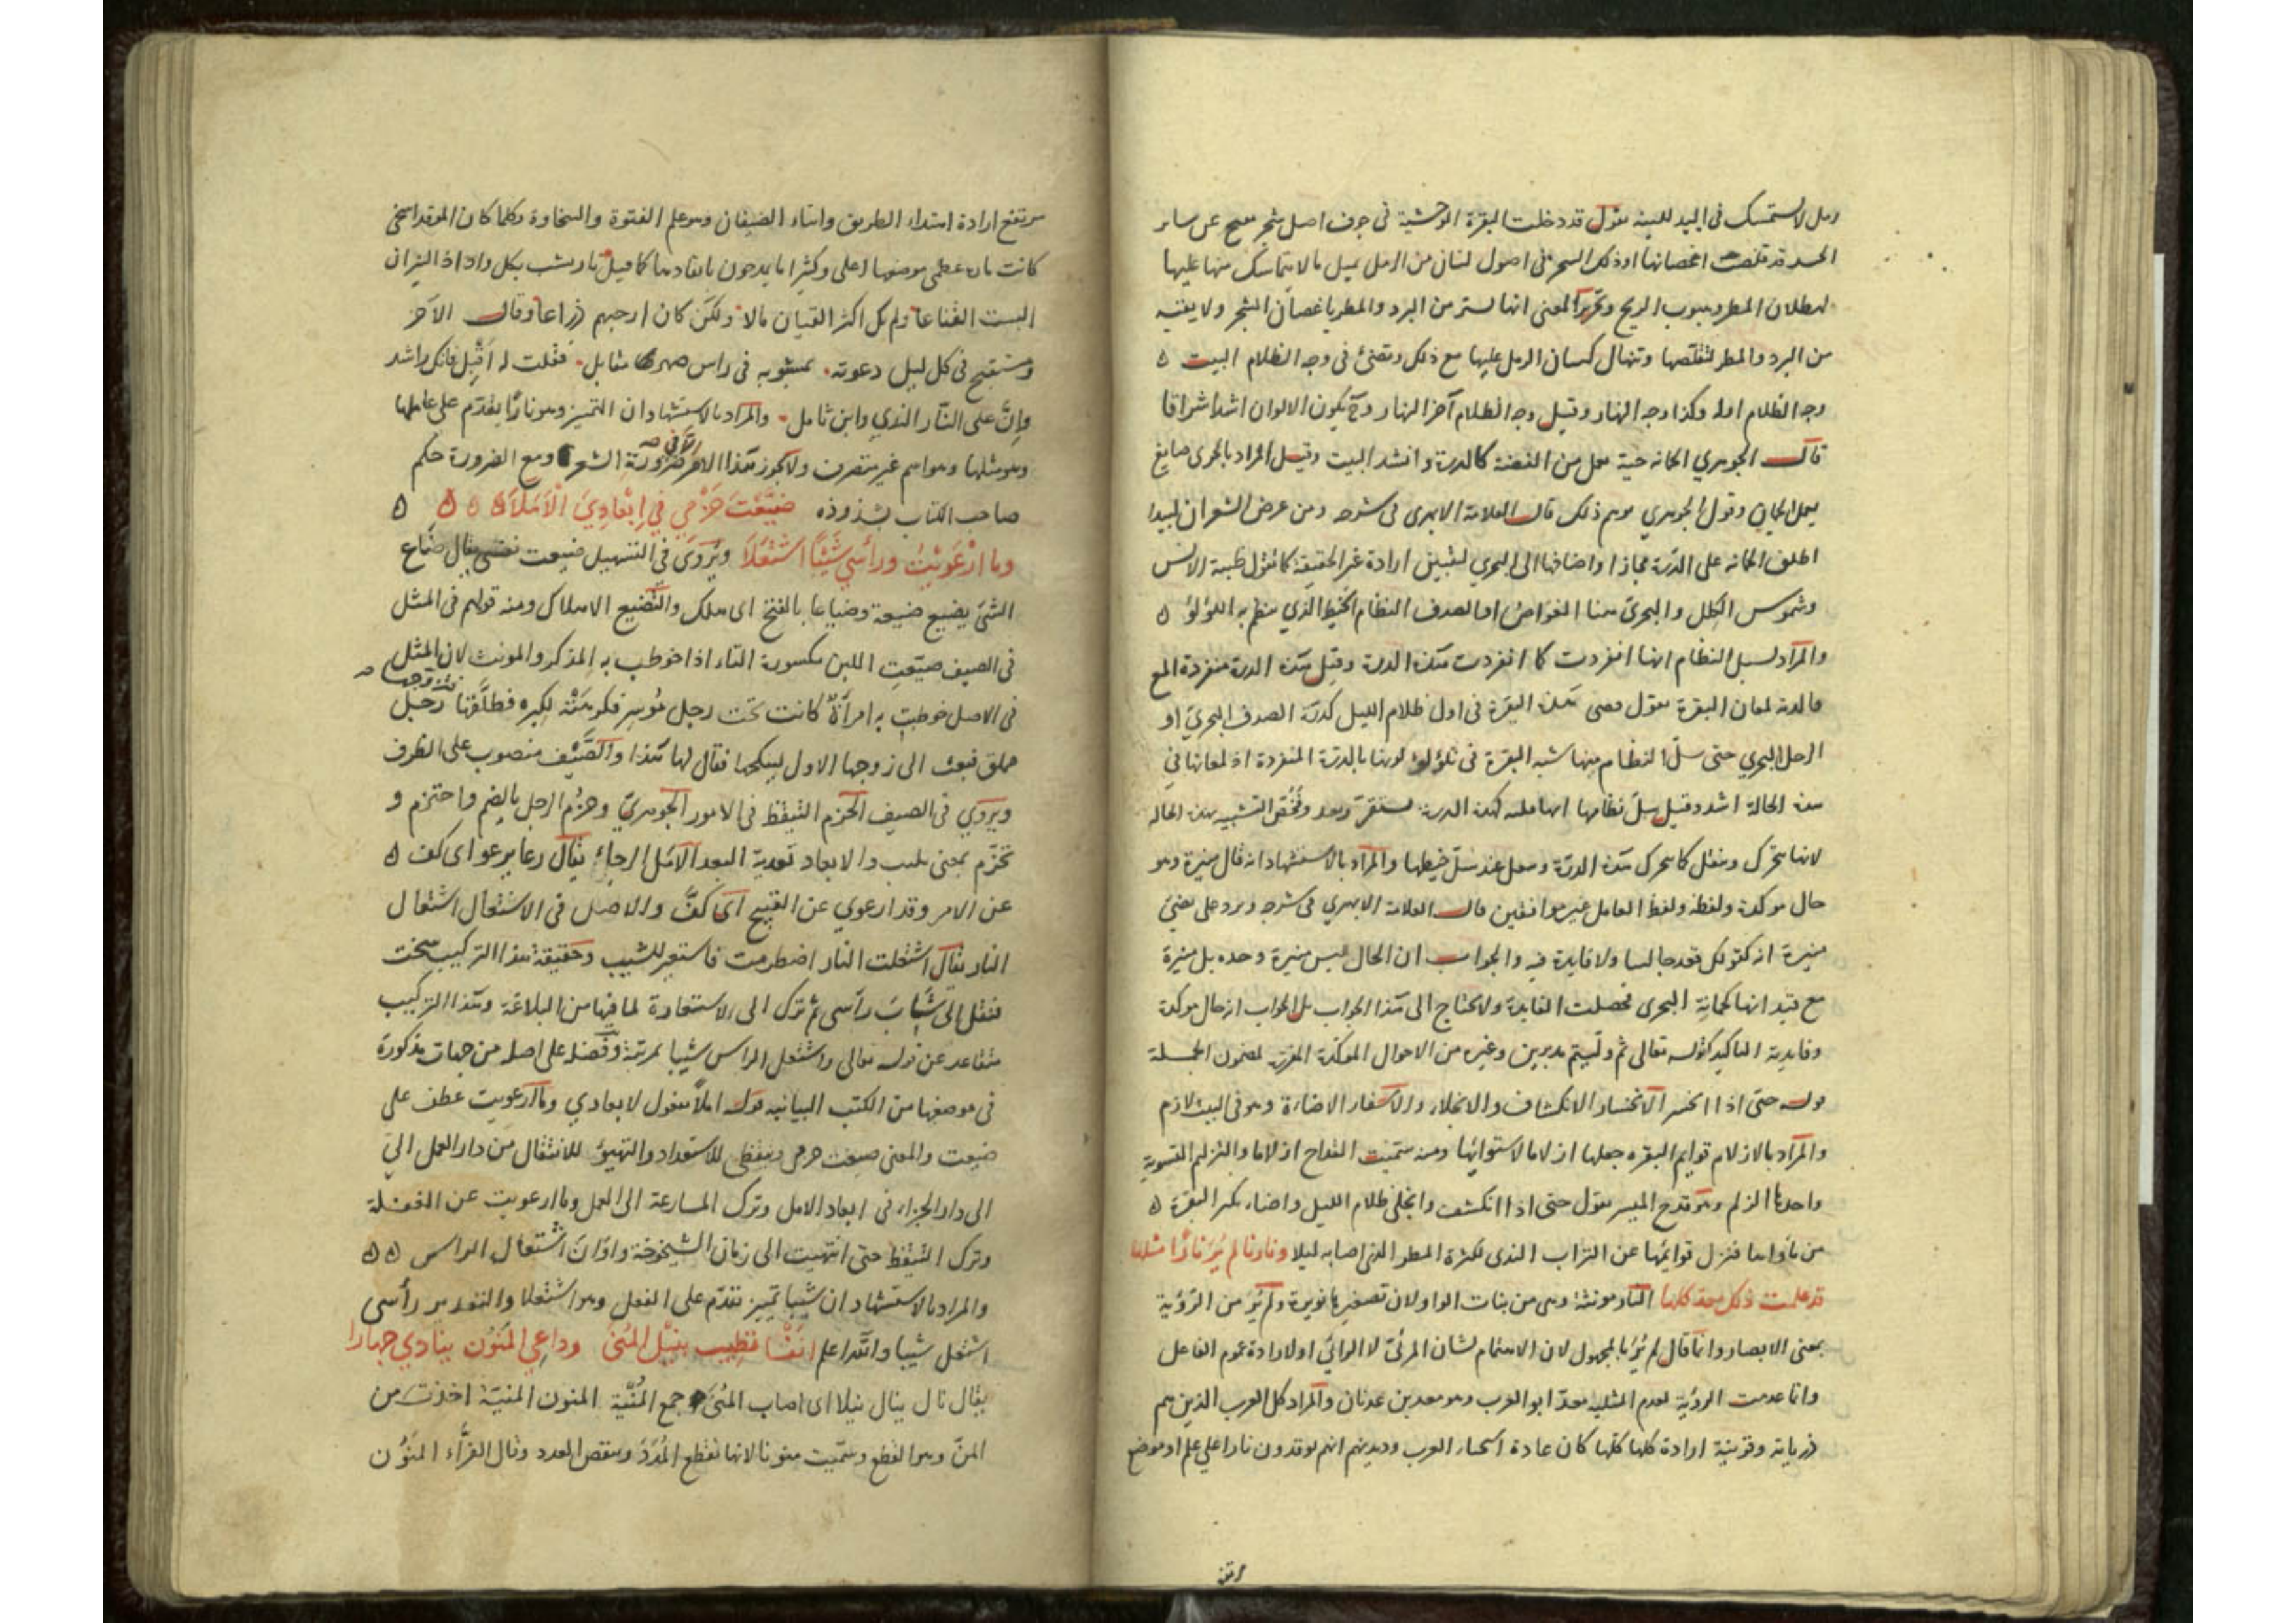 رمل لا يستمسك في اليد للينه يقول قد دخلت البقرة الوحشية في جوف اصل شجر متنح عن ساير
الشجر قد تقلصت اغصانها وذلك الشجر في اصول كثبان من الرمل يميل ما لا يتماسك منها عليها
لهطلان المطر وهبوب الريح وتحرير المعنى انها تستتر من البرد والمطر باغصان الشجر ولا يقيه
من البرد والمطر لتقلصها وتنهال كثبان الرمل عليها مع ذلك وتضئ في وجه الظلام البيت ه
وجه الظلام اوله وكذا وجه النهار وقيل وجه الظلام آخر النهار وح يكون الالوان اشد اشراقا
قال الجوهري الجمانة حبة تعمل من الفضة كالدرة وانشد البيت وقيل المراد بالبحرى صايغ
يعمل الجمان وقول الجوهري يوهم ذلك قال العلامة الابهرى في شرحه ومن عرض الشعر ان لبيدا
اطلق الجمانة على الدرة مجازا واضافها الى البحري لتبيين ارادة غير الحقيقة كما تقول ظبية الانس
وشموس الكلل والبحري هنا الغواص او الصدف النظام الخيط الذي ينظم به اللؤلؤ ه
والمراد بسل النظام انها انفردت كما انفردت هذه الدرة وقيل هذه الدرة منفردة المع
فالدرة لمعان البقرة يقول مضى هذه البقرة في اول ظلام الليل كدرة الصدف البحري او
الرجل البحري حتى سل النظام منها شبه البقرة في تلؤلؤ لونها بالدرة المنفردة اذ لمعانها في
هذه الحالة اشد وقيل سل نظامها انها قلقة كهذه الدرة لا تستقر وتعدو وتخص التشبيه بهذه الحالة
لانها تتحرك وتنتقل كما تتحرك هذه الدرة وتنتقل عند سل خيطها والمراد بالاستشهاد انه قال منيرة وهو
حال موكدة ولفظه ولفظ العامل غير موافقين قال العلامة الابهري في شرحه ويرد على تضئ
منيرة انه كقولك قعد جالسا ولا فايدة فيه والجواب ان الحال ليس منيرة وحده بل منيرة
مع قيد انها كجمانة البحرى فحصلت الفايدة ولا يحتاج الى هذا الجواب بل الجواب انه حال موكدة
وفايدته التاكيد كقوله تعالى ثم وليتم مدبرين وغيره من الاحوال الموكدة المقررة لمضمون الجملة
قوله حتى اذا انحسر الانحسار الانكشاف والانجلاء والاسفار الاضاءة وهو في البيت لازم
والمراد بالازلام قوايم البقره جعلها ازلاما لاستوائها ومنه سميت القداح ازلاما والتزليم التسوية
واحدها الزلم وهو قدح الميسر يقول حتى اذا انكشف وانجلى ظلام الليل واضاء بكر البقرة ه
من ماواها فتزل قوائمها عن التراب الندى لكثرة المطر الذي اصابه ليلا ونارنا لم ير نارا مثلها
قد علمت ذلك معد كلها النار مونثة وهى من بنات الواو لان تصغيرها نويرة ولم ير من الرؤية
بمعنى الابصار وانما قال لم ير بالمجهول لان الاهتمام لشان المرئى لا الرائي او لارادة عموم الفاعل
وانما عدمت الرؤية لعدم المثلية معد ابو العرب وهو معد بن عدنان والمراد كل العرب الذين هم
ذرياته وقرينة ارادة كلها كلها كان عادة اسخياء العرب وديدنهم انهم يوقدون نارا على علم او موضع
مرتفع ارادة اهتداء الطريق واتيان الضيفان وهو علم الفتوة والسخاوة وكلما كان الموقد اسخى
كانت ناره عظمى وموضعها اعلى وكثيرا ما يمدحون بايقادها كما قيل نار يشب بكل واد اذا النيران
البست القناعا ولم يك اكثر الفتيان مالا ولكن كان ارحبهم ذراعا وقال الآخر
ومستنبح في كل ليل دعوته بمشبوبه في راس صمد مقابل فقلت له اقبل فانك راشد
وان على النار الندي وابن ثامل والمراد بالاستشهاد ان التمييز وهو نارا يقدم على عاملها
وهو مثلها وهو اسم غير متصرف ولا يجوز هذا الامر الا في ضرورة الشعر ومع الضرورة حكم
صاحب الكتاب بشذوذه ضَيَّعْتُ حَزْمِي فِي اِبْعَادِيَ الْاَمَلَا ه ه ه ه
وما ارْعَوَيْتُ ورأسي شَيْبًا اشْتَعَلَا ويروى في التسهيل ضيعت نفسي يقال ضاع
الشئ يضيع ضيعة وضياعا بالفتح اى هلك والتضيع الاهلاك ومنه قولهم في المثل
في الصيف ضيعت اللبن مكسورة التاء اذا خوطب به المذكر والمونث لان المثل
في الاصل خوطبت به امرأة كانت تحت رجل موسر فكرهته لكبره فطلقها فتزوجها رجل
مملق فبعثت الى زوجها الاول يستمنحها فقال لها هذا والصيف منصوب على الظرف
ويروى في الصيف الحزم التيقظ في الامور الجوهري وحزم الرجل بالضم واحتزم و
تحزم بمعنى تلبب والابعاد تعدية البعد الامل الرجاء يقال رعا يرعو اى كف ه
عن الامر وقد ارعوي عن القبيح اى كف والاصل في الاشتعال اشتعال
النار يقال اشتعلت النار اضطرمت فاستعير للشيب وحقيقة هذا التركيب شخت
فنقل الى شاب رأسى ثم ترك الى الاستعارة لما فيها من البلاغة وهذا التركيب
متقاعد عن قوله تعالى واشتعل الراس شيبا بمرتبة وفضله على اصله من جهات مذكورة
في موضعها من الكتب البيانيه قوله املا مفعول لابعادي وما ارعويت عطف على
ضيعت والمعنى ضيعت حزمى وتيقظى للاستعداد والتهيؤ للانتقال من دار العمل الى
الى دار الجزاء في ابعاد الامل وترك المسارعة الى العمل وما ارعويت عن الغفلة
وترك التيقظ حتى انتهيت الى زمان الشيخوخة واوان اشتعال الراس ه ه
والمراد بالاستشهاد ان شيبا تمييز تقدم على الفعل وهو اشتعلا والتقدير رأسى
اشتعل شيبا والله اعلم انفسًا تطيب بنيل المنى وداعي المنون ينادي جهارا
يقال نال ينال نيلا اى اصاب المنى جمع المنية المنون المنية اخذت من
المن وهو القطع وسميت منونا لانها تقطع المدد وتنقص العدد وقال الفراء المنون